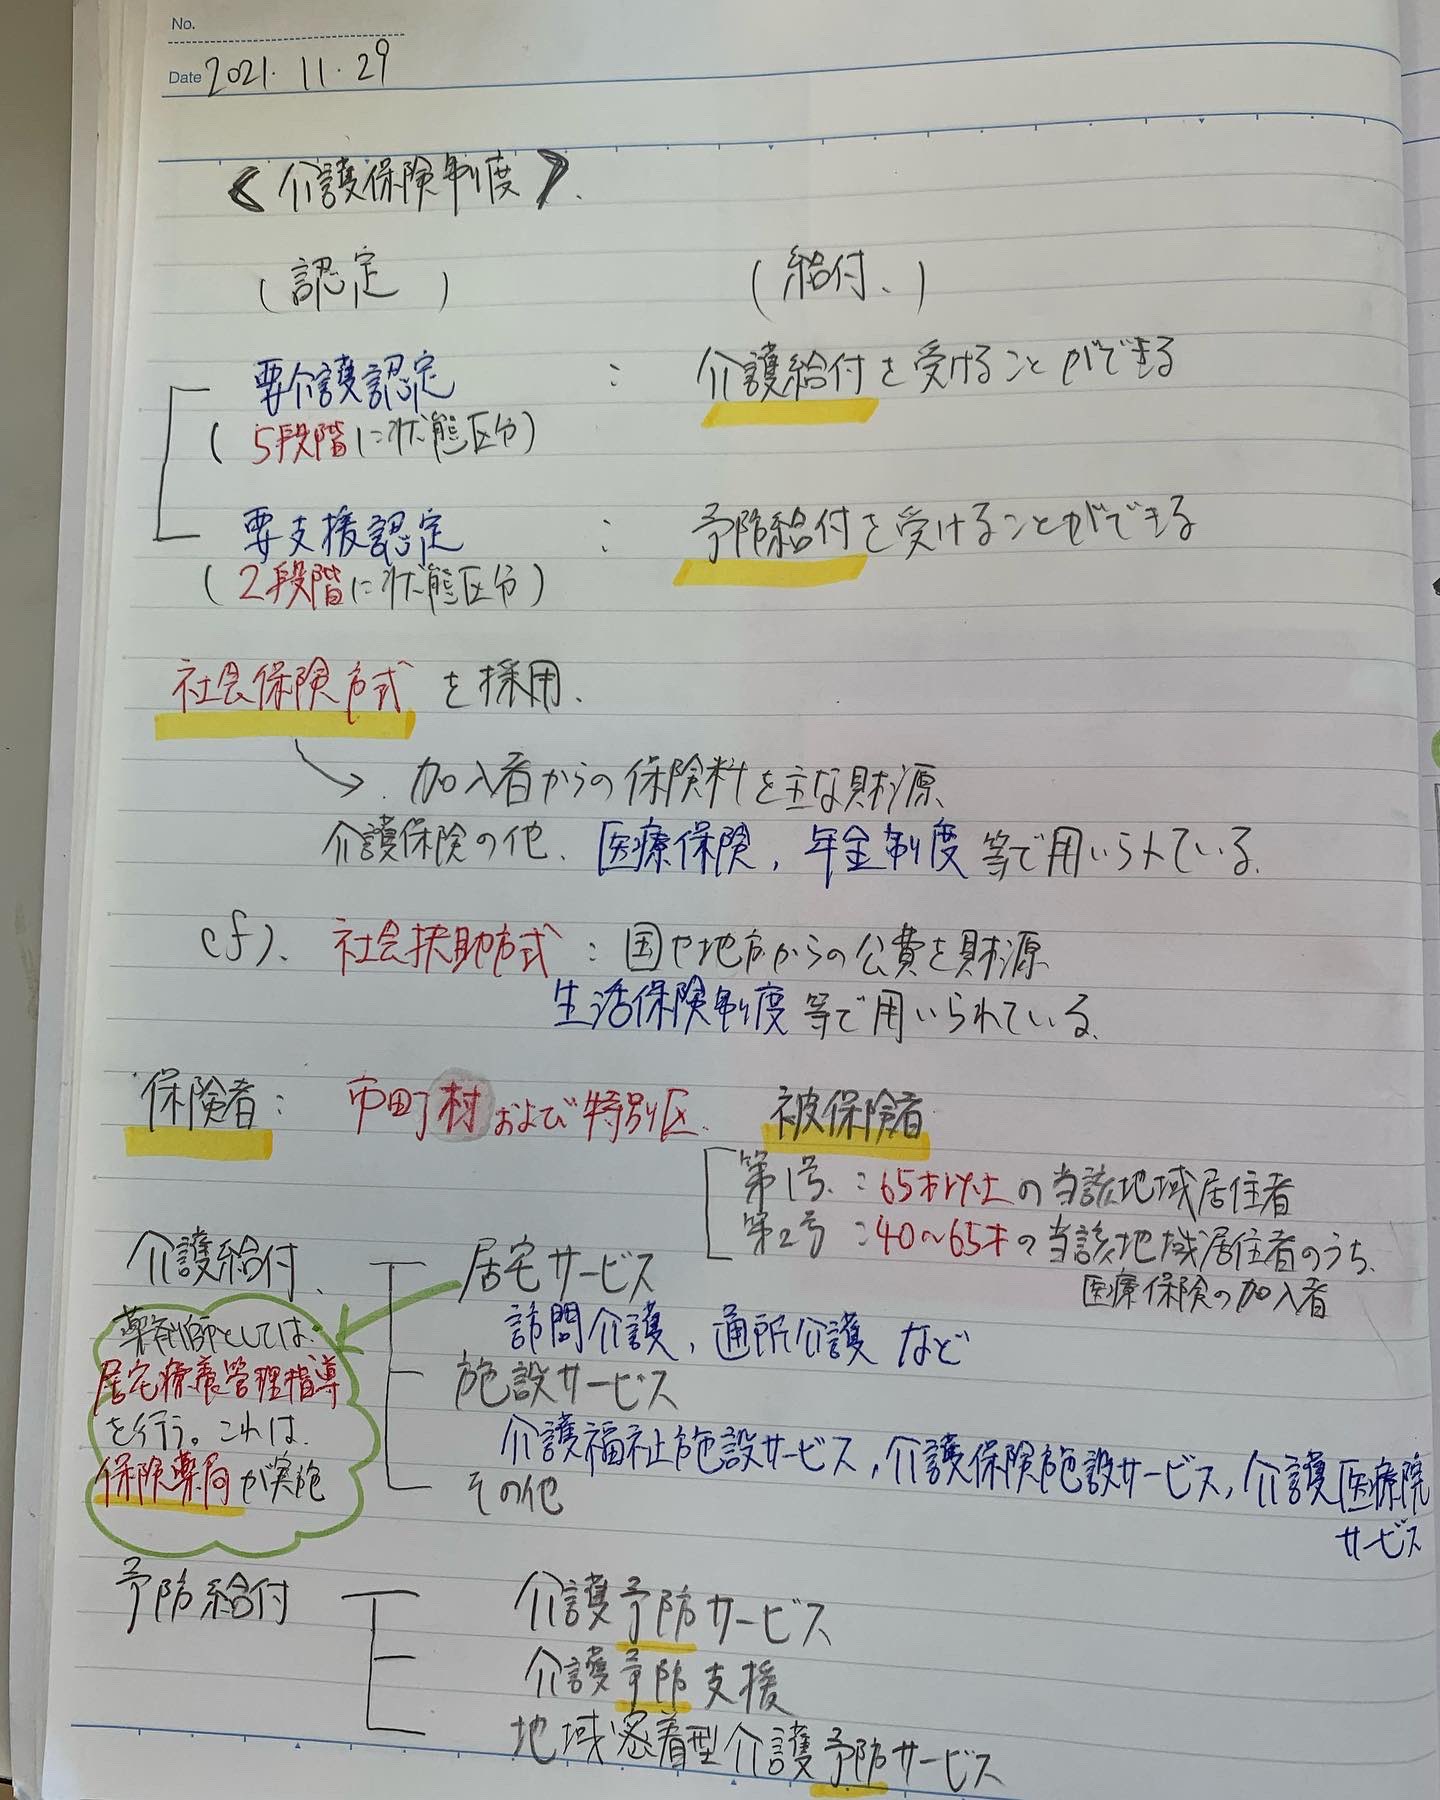 No.
Date 2021. 11. 29
《介護保険制度》.
(認定)
(給付、)
要介護認定 : 介護給付を受けることができる
(5段階に状態区分)
要支援認定 : 予防給付を受けることができる
(2段階に状態区分)
社会保険方式を採用、
→ 加入者からの保険料を主な財源、
介護保険の他、医療保険, 年金制度等で用いられている.
cf). 社会扶助方式 : 国や地方からの公費を財源
生活保険制度等で用いられている.
保険者 : 市町村および特別区.
被保険者
第1号 : 65才以上の当該地域居住者
第2号 : 40~65才の当該地域居住者のうち、
医療保険の加入者
介護給付、
居宅サービス
訪問介護, 通所介護 など
施設サービス
介護福祉施設サービス, 介護保険施設サービス, 介護医療院
サービス
その他
薬剤師としては、
居宅療養管理指導
を行う。これは、
保険薬局が実施
予防給付
介護予防サービス
介護予防支援
地域密着型介護予防サービス